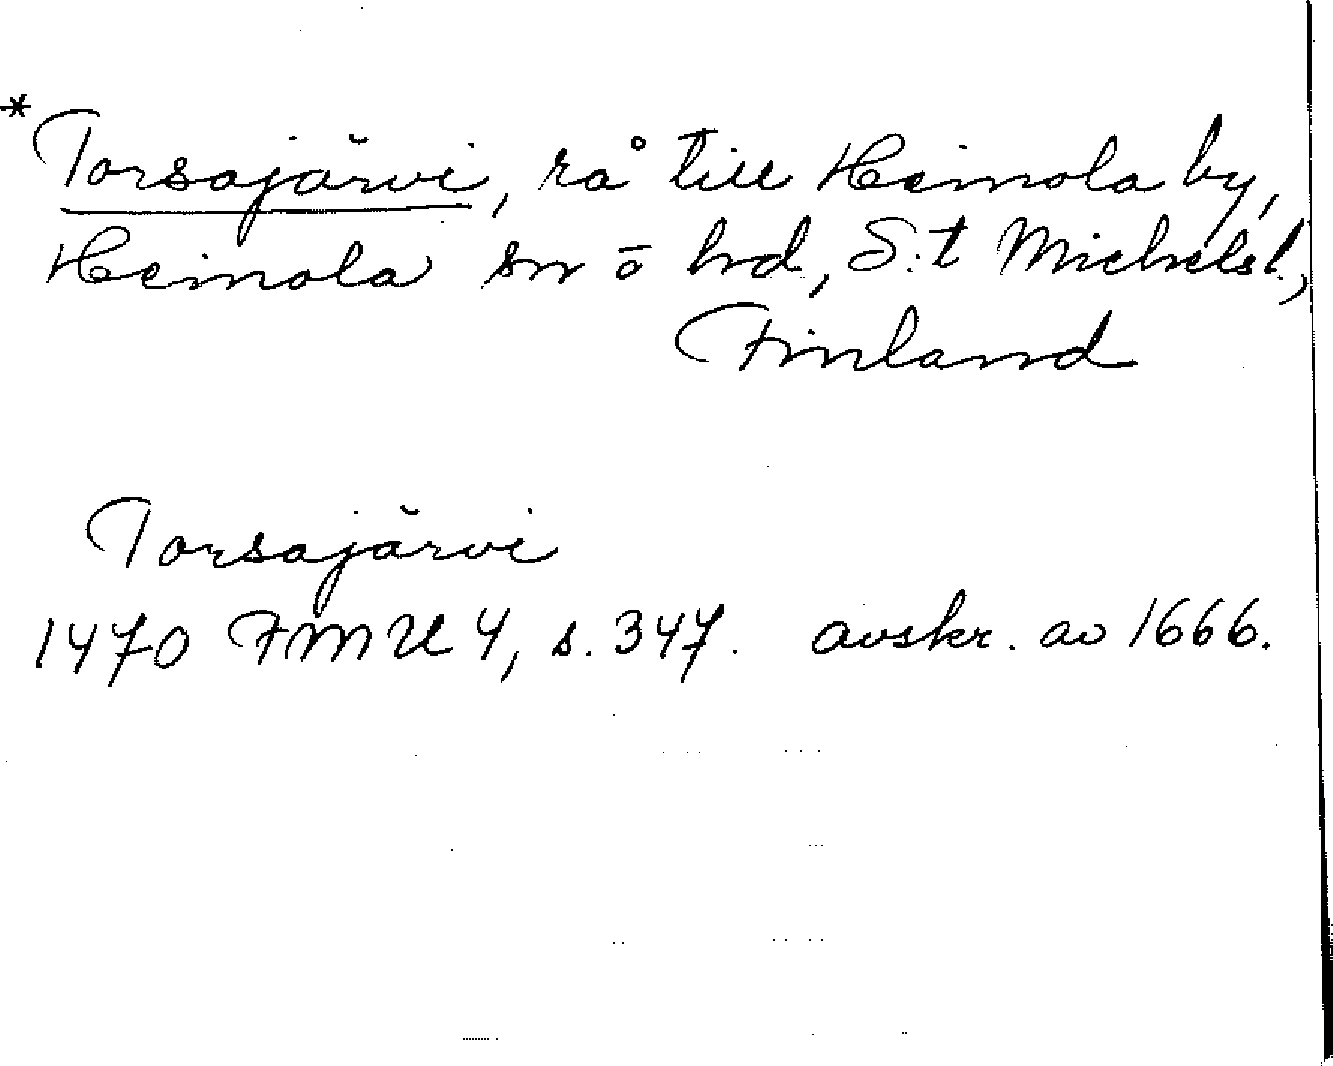 *Torsajärvi, rå till Heinola by,
Heinola sn o hd, S:t Michelsl.,
Finland
Torsajärvi
1470 FMU 4, s. 347. avskr. av 1666.